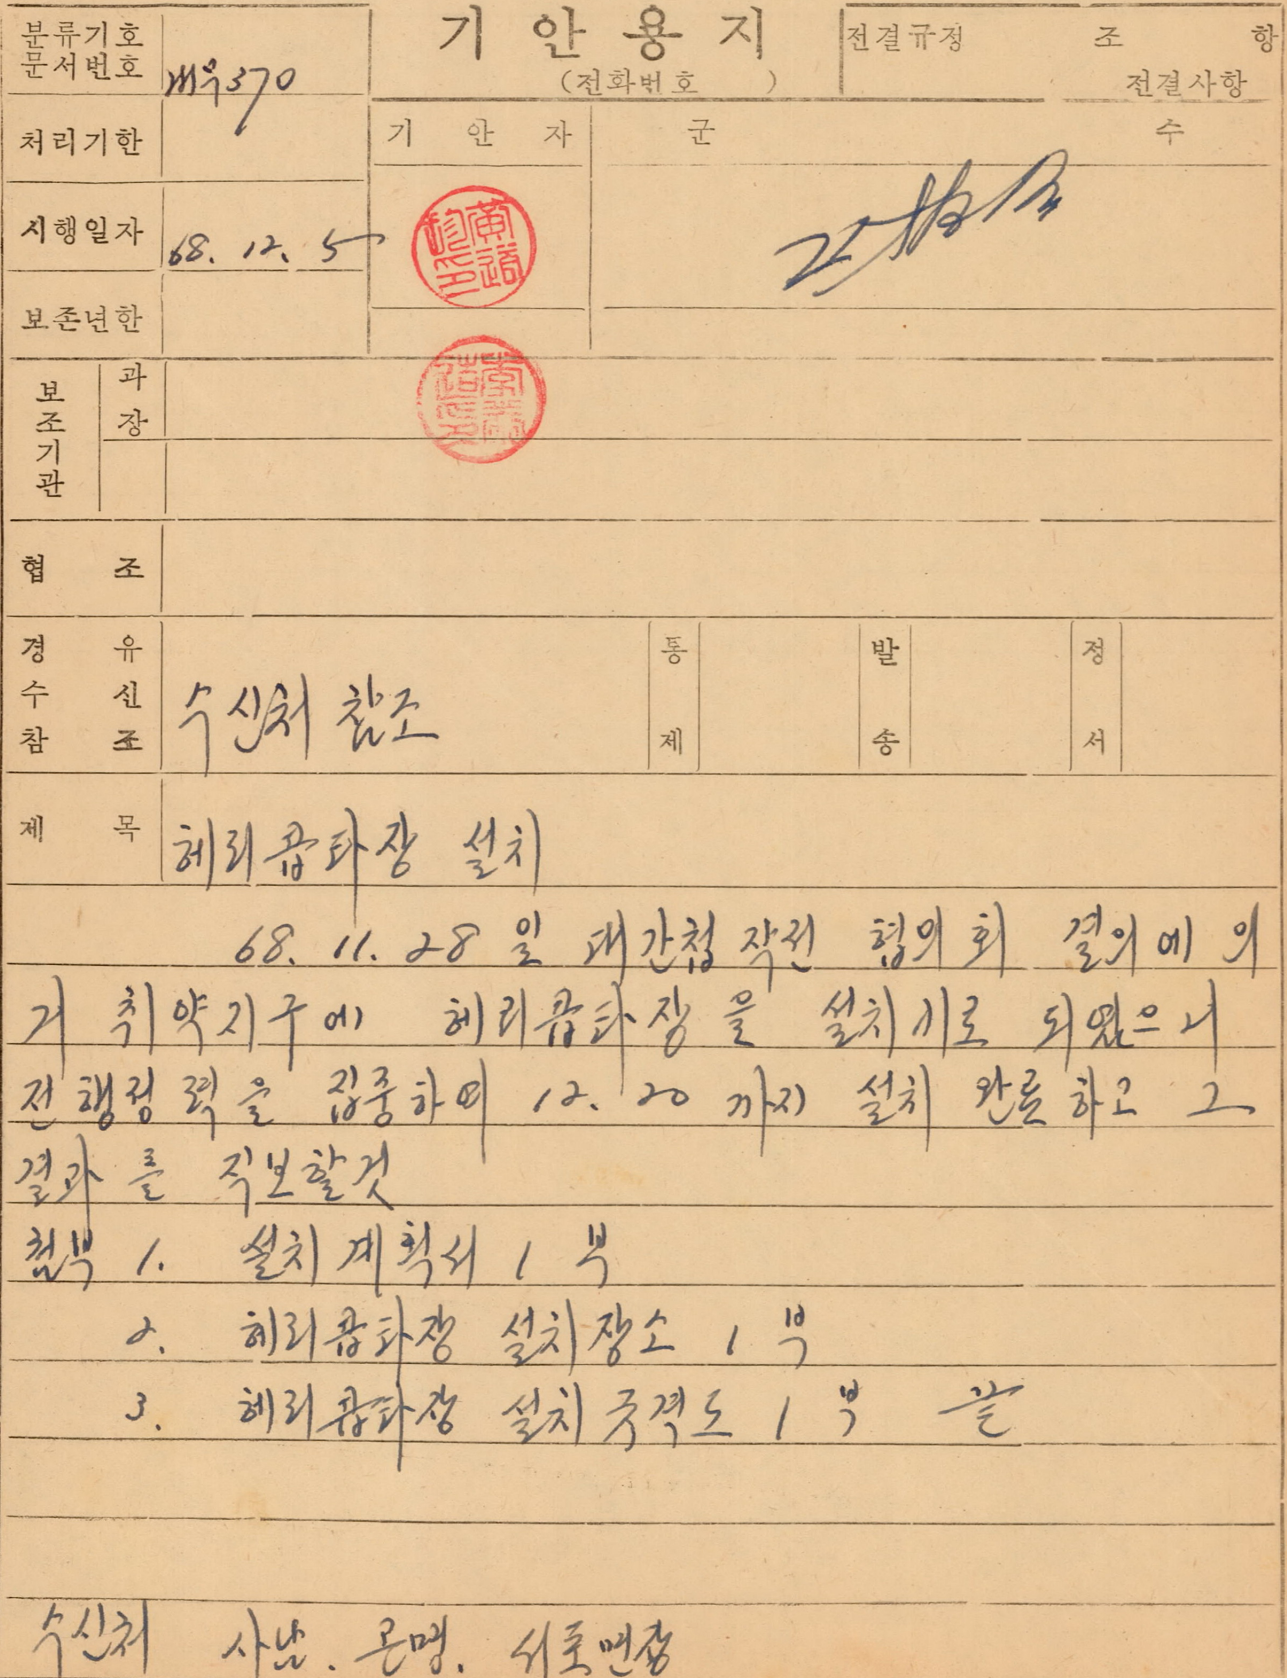 분류기호
문서번호
370
기 안 용 지
(전화번호 )
전결규정 조 항
전결사항
처리기한
기 안 자
군 수
시행일자 68. 12. 5
보존년한
보조기관
과장
협 조
경 유
수 신
참 조
수신처 참조
통제
발송
정서
제 목 헤리콥타장 설치
68. 11. 28 일 대간첩작전 협의회 결의에 의
거 취약지구에 헤리콥타장을 설치키로 되였으니
전행정력을 집중하여 12. 20 까지 설치 완료하고 그
결과를 직보할것
첨부 1. 설치계획서 1 부
2. 헤리콥타장 설치장소 1 부
3. 헤리콥타장 설치규격도 1 부 끝
수신처 사남. 곤명. 서포면장